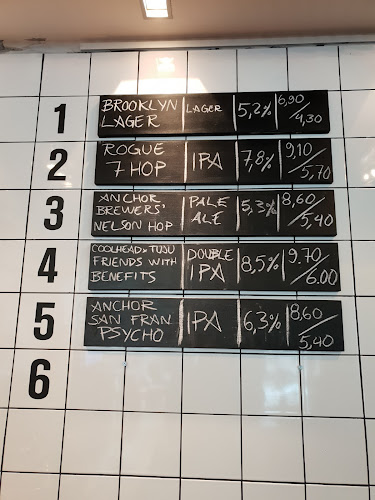 1 BROOKLYN LAGER LAGER 5,2% 6,90/4,30
2 ROGUE 7 HOP IPA 7,8% 9,10/5,70
3 ANCHOR BREWERS' NELSON HOP PALE ALE 5,3% 8,60/5,40
4 COOLHEAD x TUJU FRIENDS WITH BENEFITS DOUBLE IPA 8,5% 9.70/6.00
5 ANCHOR SAN FRAN PSYCHO IPA 6,3% 8,60/5,40
6